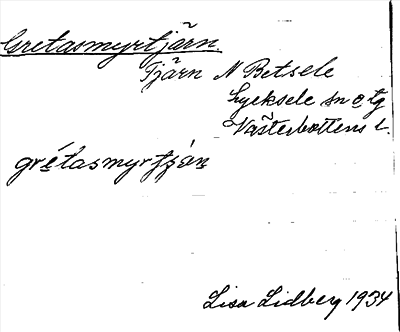 Gretasmyrtjärn
Tjärn N Betsele
Lycksele sn o tg
Västerbottens l.
grétasmyrtján
Lisa Lidberg 1934